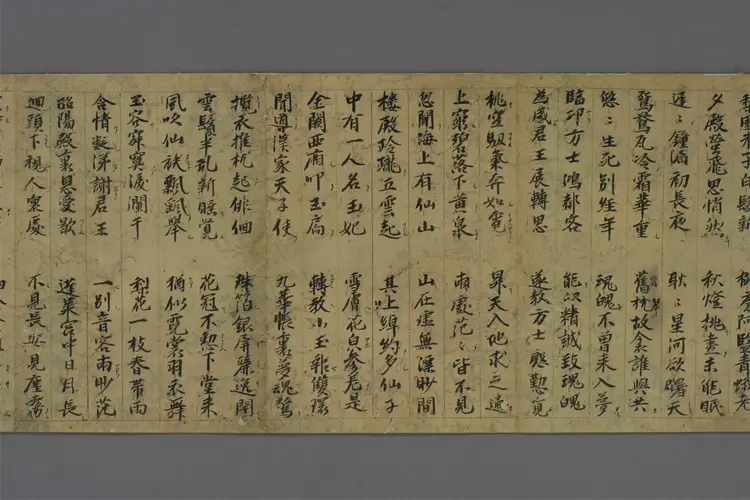 夕殿螢飛思悄然 秋燈挑盡未能眠
遲〻鐘漏初長夜 耿〻星河欲曙天
鴛鴦瓦冷霜華重 舊枕故衾誰與共
悠〻生死別經年 魂魄不曽来入夢
臨邛方士鴻都客 能以精誠致魂魄
為感君王展轉思 遂教方士慇懃覓
排空馭氣奔如電 昇天入地求之遍
上窮碧落下黄泉 兩處茫〻皆不見
忽聞海上有仙山 山在虛無漂眇間
樓殿玲瓏五雲起 其上綽約多仙子
中有一人名玉妃 雪膚花皃参差是
金闕西廂叩玉扃 轉教小玉報雙
聞導漢家天子使 九華帳裏夢魂驚
攬衣推枕起俳佪 珠箔銀屏邐迤開
雲鬢半乱新睡覺 花冠不整下堂来
風吹仙袂飄颻舉 猶似霓裳羽衣舞
玉容寂寞淚瀾干 梨花一枝春帯雨
含情凝涕謝君王 一別音容兩眇茫
昭陽殿裏恩愛歇 蓬莱宮中日月長
迴頭下視人寰處 不見長安見塵霧